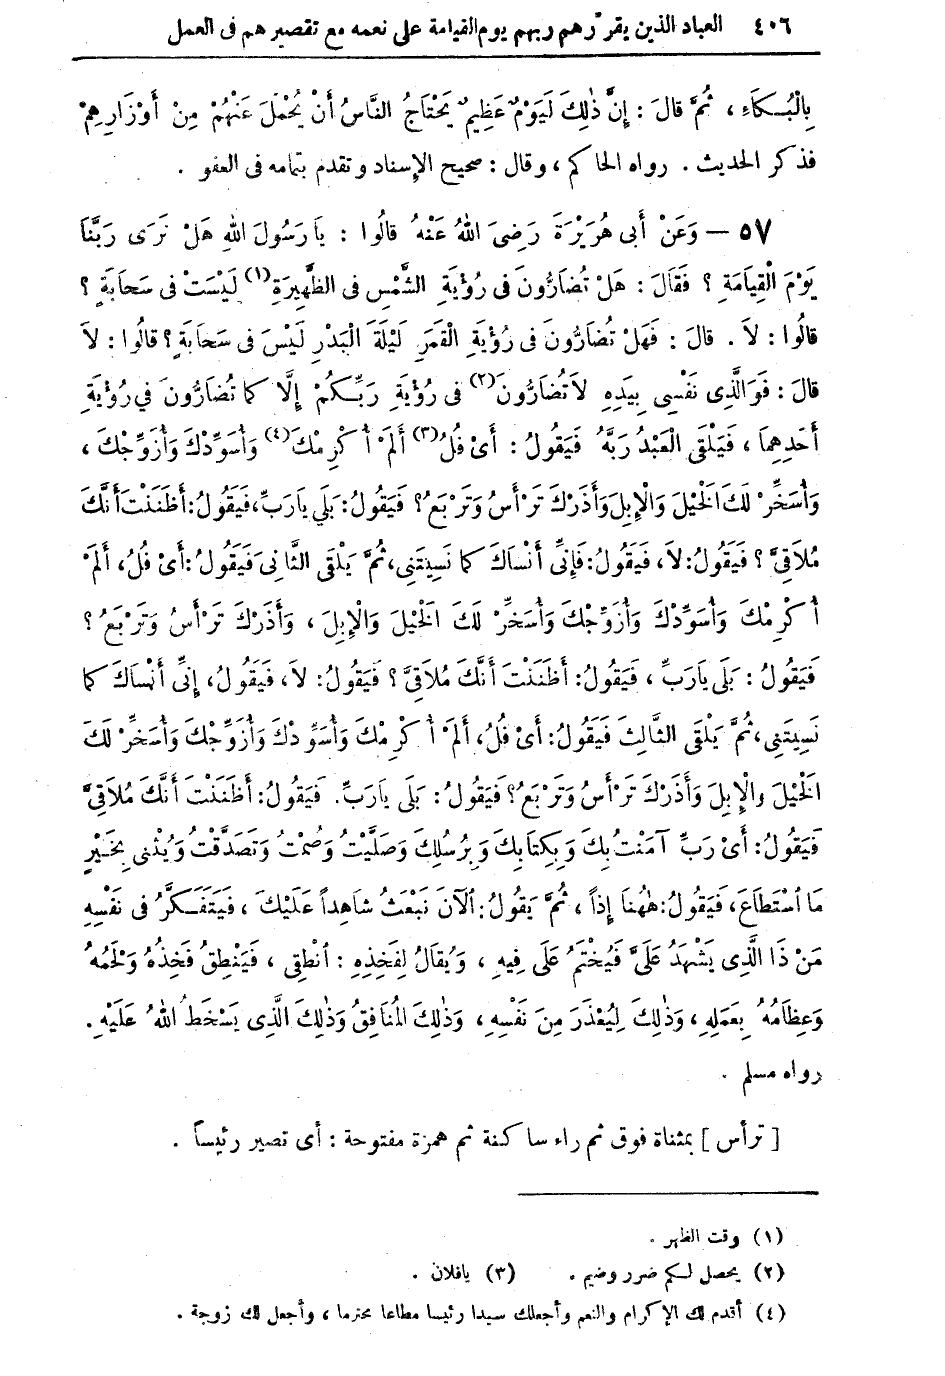 ٤٠٦ العباد الذين يقرّرهم ربهم يوم القيامة على نعمه مع تقصيرهم فى العمل
بِالْبُكَاءِ ، ثُمَّ قالَ : إِنَّ ذٰلِكَ لَيَوْمٌ عَظِيمٌ يَحْتَاجُ النَّاسُ أَنْ يُحْمَلَ عَنْهُمْ مِنْ أَوْزَارِهِمْ
فذكر الحديث . رواه الحاكم ، وقال : صحيح الإسناد وتقدم بتمامه فى العفو .
٥٧ — وَعَنْ أَبِى هُرَيْرَةَ رَضِىَ اللهُ عَنْهُ قالُوا : يَا رَسُولَ اللهِ هَلْ نَرَى رَبَّنَا
يَوْمَ الْقِيَامَةِ ؟ فَقَالَ : هَلْ تُضَارُّونَ فى رُؤْيَةِ الشَّمْسِ فى الظَّهِيرَةِ(١) لَيْسَتْ فى سَحَابَةٍ ؟
قالُوا : لاَ . قالَ : فَهَلْ تُضَارُّونَ فى رُؤْيَةِ الْقَمَرِ لَيْلَةَ الْبَدْرِ لَيْسَ فى سَحَابَةٍ ؟ قالُوا : لاَ
قالَ : فَوَالَّذِى نَفْسِى بِيَدِهِ لاَ تُضَارُّونَ(٢) فى رُؤْيَةِ رَبِّكُمْ إِلَّا كما تُضَارُّونَ فى رُؤْيَةِ
أَحَدِهِمَا ، فَيَلْقَى الْعَبْدُ رَبَّهُ فَيَقُولُ : أَىْ فُلُ(٣) أَلَمْ أُكْرِمْكَ(٤) وَأُسَوِّدْكَ وَأُزَوِّجْكَ ،
وَأُسَخِّرْ لَكَ الْخَيْلَ وَالْإِبِلَ وَأَذَرْكَ تَرْأَسُ وَتَرْبَعُ ؟ فَيَقُولُ : بَلَى يَارَبِّ ، فَيَقُولُ : أَظَنَنْتَ أَنَّكَ
مُلاَقِىَّ ؟ فَيَقُولُ : لاَ ، فَيَقُولُ : فَإِنِّى أَنْسَاكَ كما نَسِيتَنِى ، ثُمَّ يَلْقَى الثَّانِىَ فَيَقُولُ : أَىْ فُلُ ، أَلَمْ
أُكْرِمْكَ وَأُسَوِّدْكَ وَأُزَوِّجْكَ وَأُسَخِّرْ لَكَ الْخَيْلَ وَالْإِبِلَ ، وَأَذَرْكَ تَرْأَسُ وَتَرْبَعُ ؟
فَيَقُولُ : بَلَى يَارَبِّ ، فَيَقُولُ : أَظَنَنْتَ أَنَّكَ مُلاَقِىَّ ؟ فَيَقُولُ : لاَ ، فَيَقُولُ ، إِنِّى أَنْسَاكَ كما
نَسِيتَنِى ، ثُمَّ يَلْقَى الثَّالِثَ فَيَقُولُ : أَىْ فُلُ ، أَلَمْ أُكْرِمْكَ وَأُسَوِّدْكَ وَأُزَوِّجْكَ وَأُسَخِّرْ لَكَ
الْخَيْلَ والْإِبِلَ وَأَذَرْكَ تَرْأَسُ وَتَرْبَعُ ؟ فَيَقُولُ : بَلَى يَارَبِّ . فَيَقُولُ : أَظَنَنْتَ أَنَّكَ مُلاَقِىَّ
فَيَقُولُ : أَىْ رَبِّ آمَنْتُ بِكَ وَبِكِتَابِكَ وَبِرُسُلِكَ وَصَلَّيْتُ وَصُمْتُ وَتَصَدَّقْتُ وَيُثْنِى بِخَيْرٍ
مَا اسْتَطَاعَ ، فَيَقُولُ : هٰهُنَا إِذاً ، ثُمَّ يَقُولُ : اَلْآنَ نَبْعَثُ شاهِداً عَلَيْكَ ، فَيَتَفَكَّرُ فى نَفْسِهِ
مَنْ ذَا الَّذِى يَشْهَدُ عَلَىَّ فَيُخْتَمُ عَلَى فِيهِ ، وَيُقَالُ لِفَخِذِهِ : اَنْطِقِى ، فَيَنْطِقُ فَخِذُهُ وَلَحْمُهُ
وَعِظَامُهُ بِعَمَلِهِ ، وَذٰلِكَ لِيُعْذَرَ مِنَ نَفْسِهِ ، وَذٰلِكَ الْمُنَافِقُ وَذٰلِكَ الَّذِى يَسْخَطُ اللهُ عَلَيْهِ .
رواه مسلم .
[ ترأس ] بمثناة فوق ثم راء ساكنة ثم همزة مفتوحة : أى تصير رئيساً .
(١) وقت الظهر .
(٢) يحصل لكم ضرر وضيم . (٣) يافلان .
(٤) أقدم لك الإكرام والنعم وأجعلك سيدا رئيسا مطاعا محترما ، وأجعل لك زوجة .